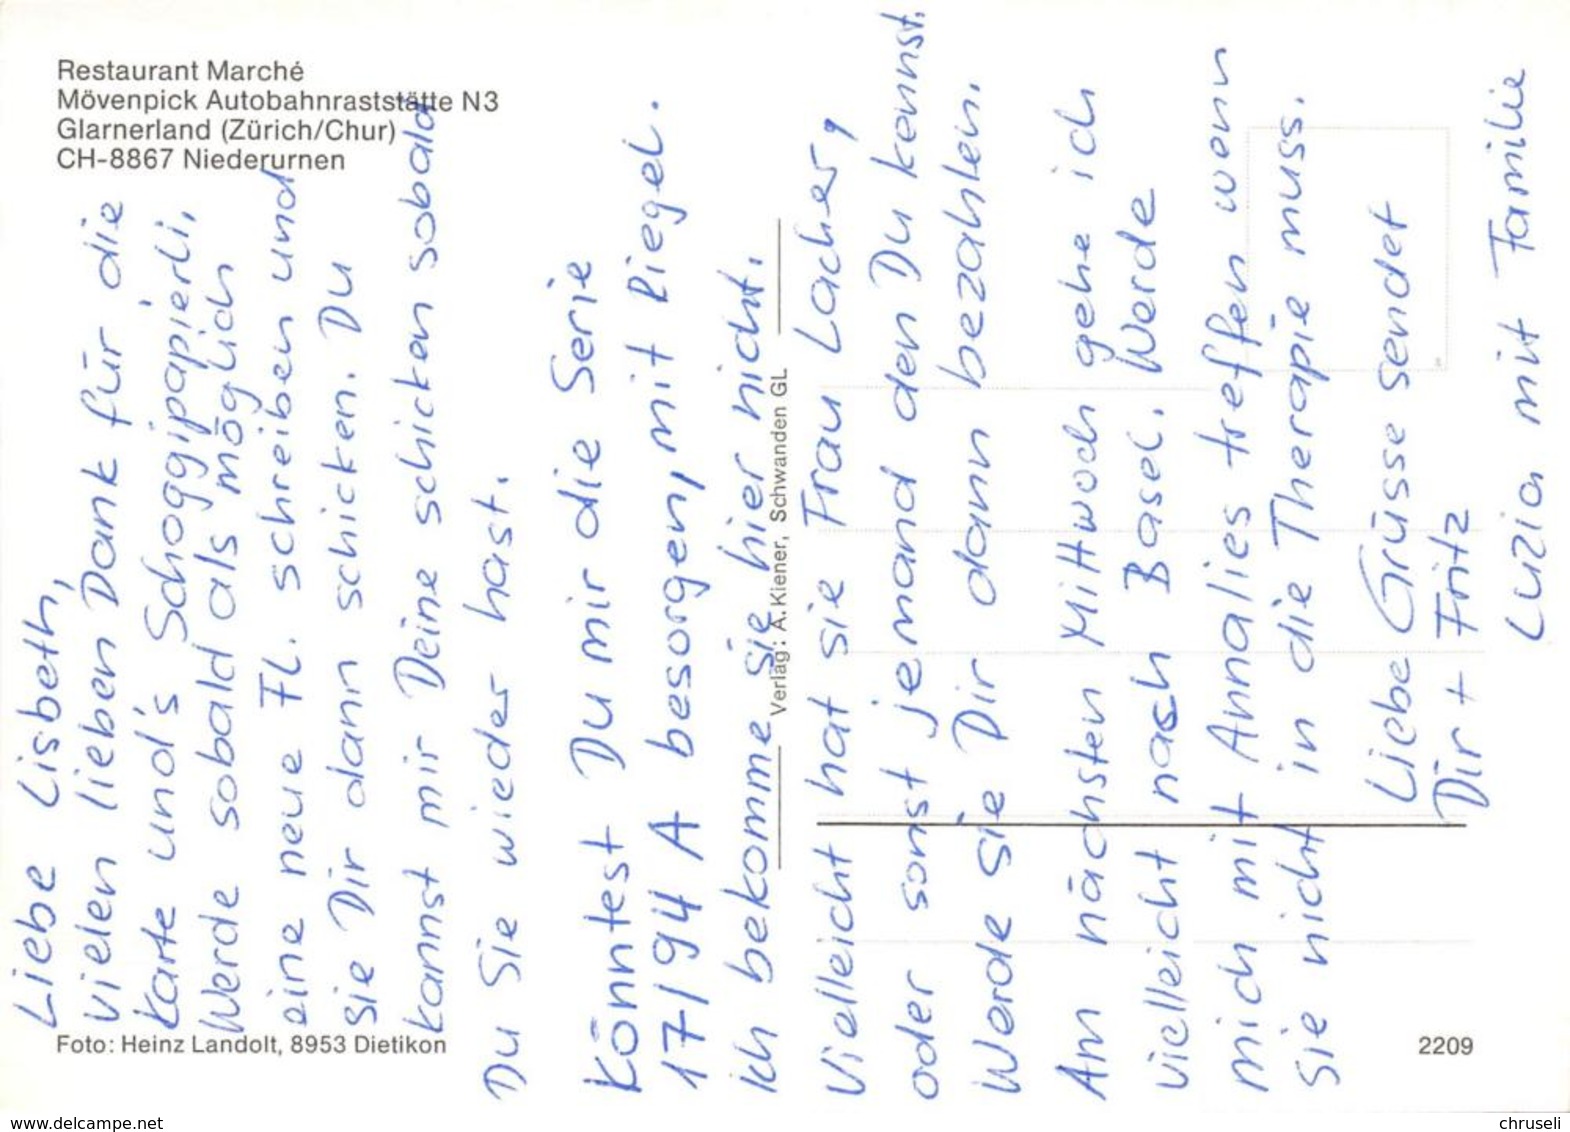 Restaurant Marché
Mövenpick Autobahnraststätte N3
Glarnerland (Zürich/Chur)
CH-8867 Niederurnen
Liebe Lisbeth,
vielen lieben Dank für die
Karte und's Schoggipapierli,
Werde sobald als möglich
eine neue FL. schreiben und
sie Dir dann schicken. Du
kannst mir Deine schicken sobald
Du Sie wieder hast.
Könntest Du mir die Serie
17/94 A besorgen, mit Riegel.
Ich bekomme sie hier nicht.
Vielleicht hat sie Frau Lacher,
oder sonst jemand den Du kennst.
Werde sie Dir dann bezahlen.
Am nächsten Mittwoch gehe ich
vielleicht nach Basel. Werde
mich mit Annalies treffen wenn
Sie nicht in die Therapie muss.
Liebe Grüsse sendet
Dir + Fritz
Luzia mit Familie
Verlag: A. Kiener, Schwanden GL
Foto: Heinz Landolt, 8953 Dietikon
2209
www.delcampe.net
chruseli